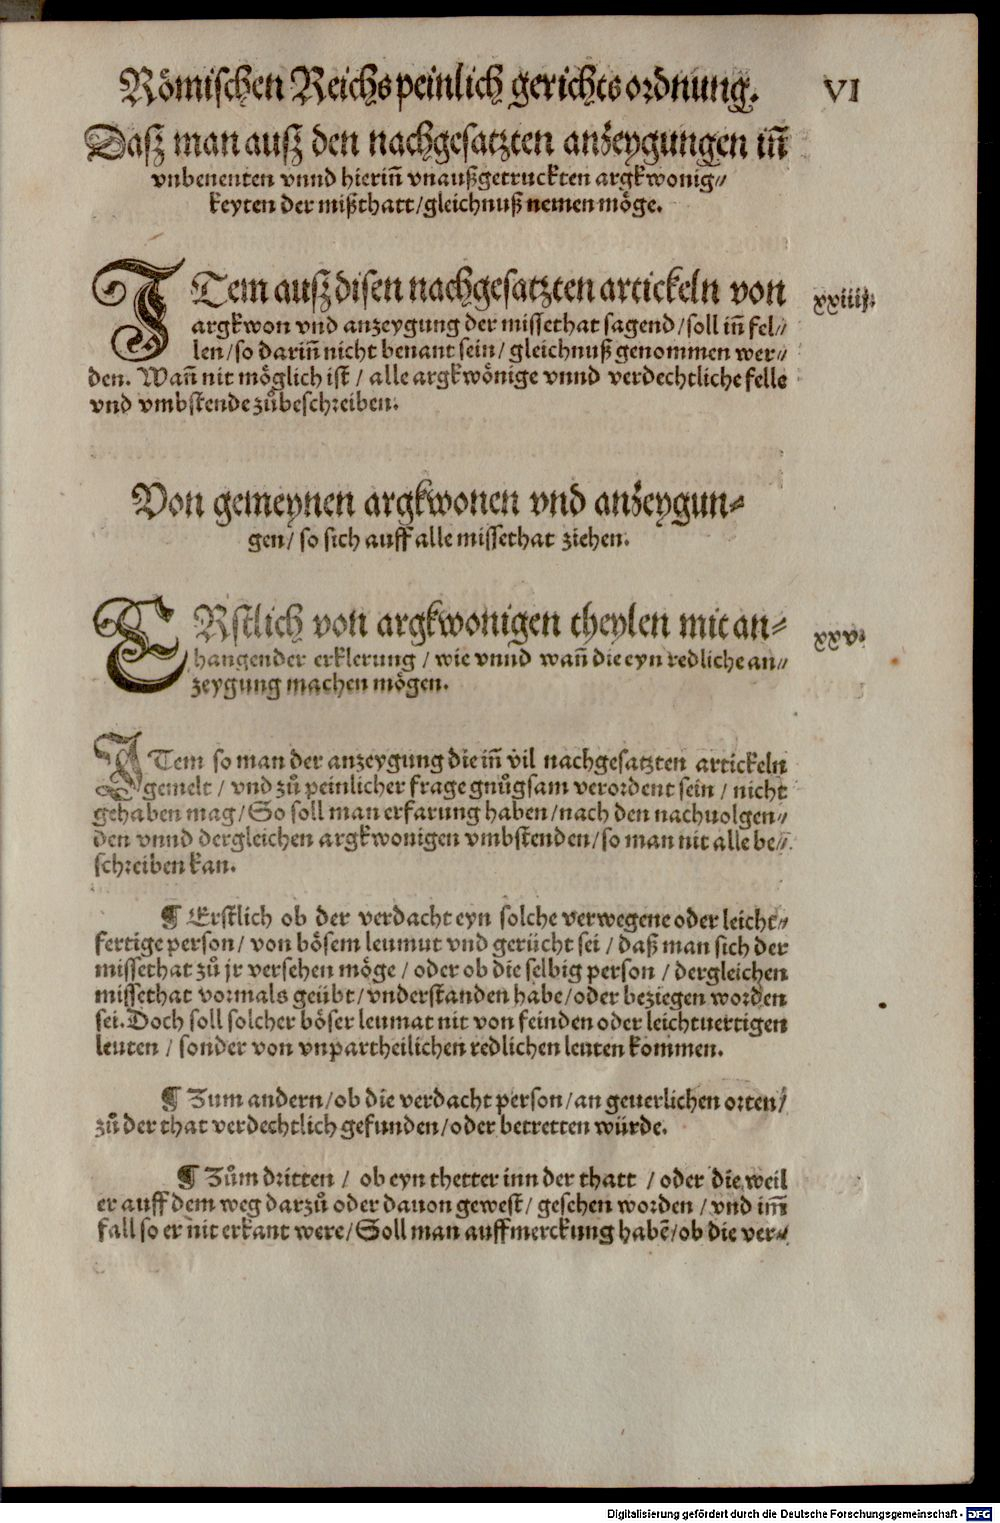 Römischen Reichs peinlich gerichts ordnung. VI
Dasz man ausz den nachgesatzten anzeygungen inn̄
vnbenenten vnnd hierin̄ vnaußgetruckten argkwonig⸗
keyten der mißthatt/gleichnuß nemen möge.
ITem ausz disen nachgesatzten artickeln von xxiiij.
argkwon vnd anzeygung der missethat sagend/soll in̄ fel⸗
len/so darin̄ nicht benant sein/gleichnuß genommen wer⸗
den. Wan̄ nit möglich ist / alle argkwönige vnnd verdechtliche felle
vnd vmbstende zů beschreiben.
Von gemeynen argkwonen vnd anzeygun⸗
gen/ so sich auff alle missethat ziehen.
ERstlich von argkwonigen theylen mit an⸗ xxv.
hangender erklerung / wie vnnd wan̄ die eyn redliche an⸗
zeygung machen mögen.
ITem so man der anzeygung die in̄ vil nachgesatzten artickeln
gemelt / vnd zů peinlicher frage gnůgsam verordent sein / nicht
gehaben mag/So soll man erfarung haben/nach den nachuolgen⸗
den vnnd dergleichen argkwonigen vmbstenden/so man nit alle be⸗
schreiben kan.
¶ Erstlich ob der verdacht eyn solche verwegene oder leicht⸗
fertige person/ von bösem leumut vnd gerücht sei / daß man sich der
missethat zů jr versehen möge / oder ob die selbig person / dergleichen
missethat vormals geübt/vnderstanden habe/oder beziegen worden
sei. Doch soll solcher böser leumat nit von feinden oder leichtuertigen
leuten / sonder von vnpartheilichen redlichen leuten kommen.
¶ Zum andern/ob die verdacht person/an geuerlichen orten/
zů der that verdechtlich gefunden/oder betretten würde.
¶ Zům dritten / ob eyn thetter inn der thatt / oder die weil
er auff dem weg darzů oder dauon gewest/ gesehen worden / vnd im̄
fall so er nit erkant were/Soll man auffmerckung habẽ/ob die ver⸗
Digitalisierung gefördert durch die Deutsche Forschungsgemeinschaft - DFG